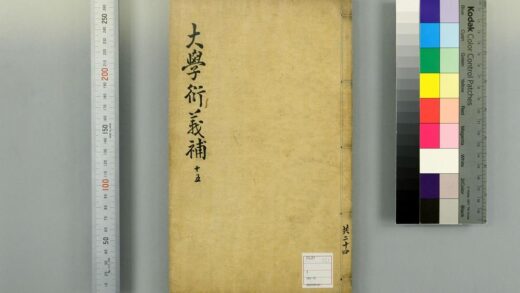 大學衍義補
十五
共二十四
250
200
150
100
50
Kodak
Color Control Patches
Blue
Cyan
Green
Yellow
Red
Magenta
White
3/Color
Black